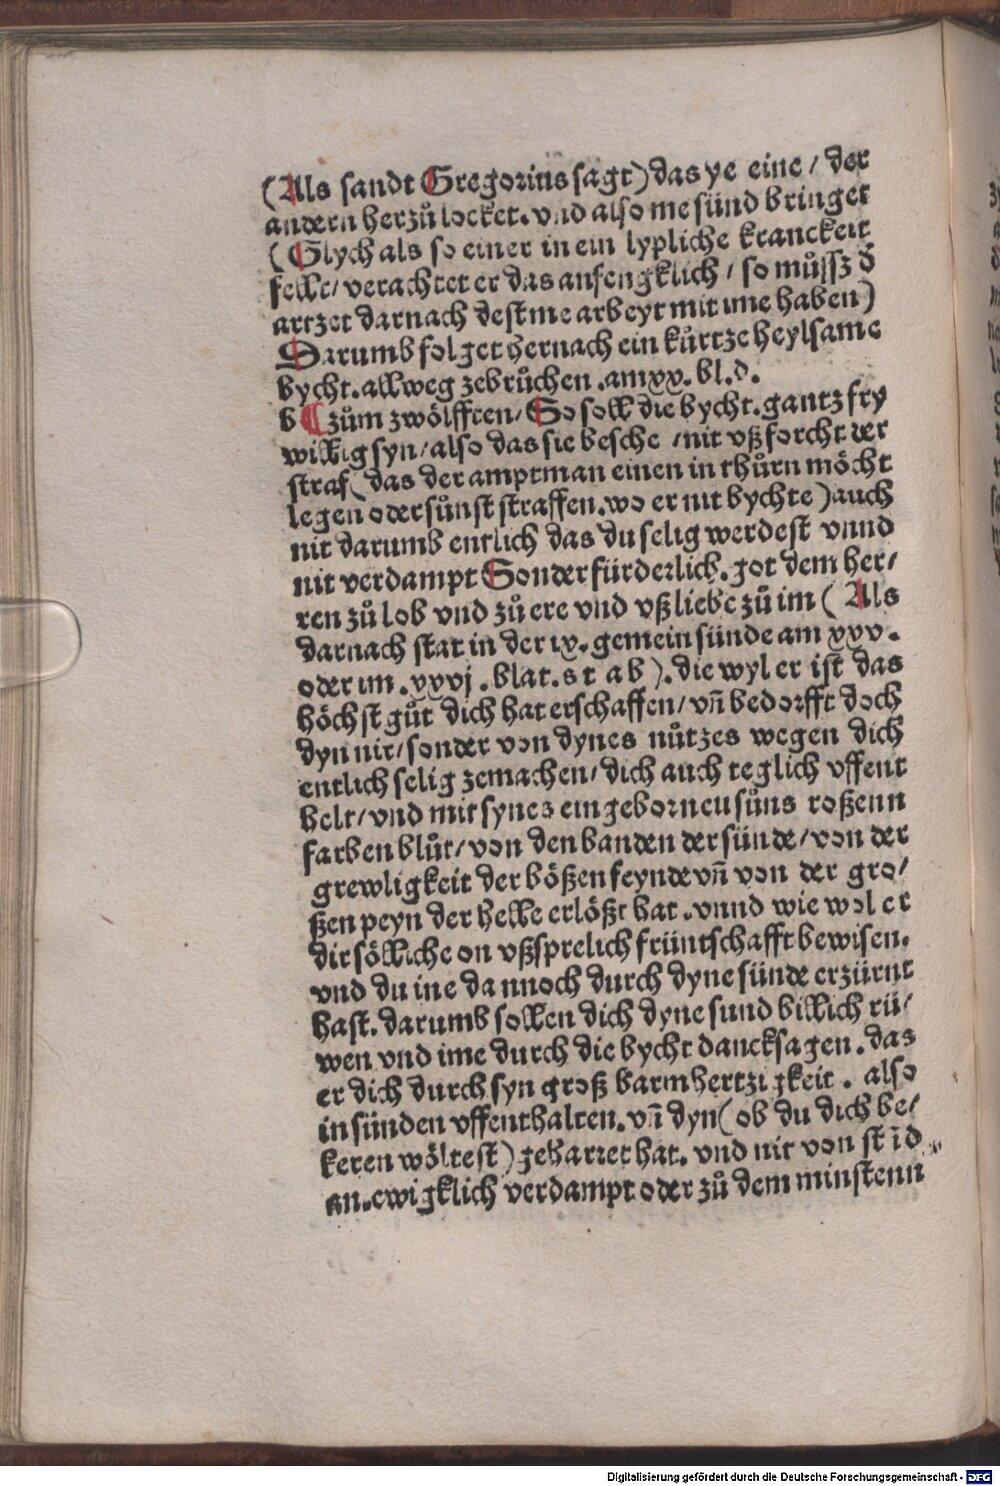 (Als sandt Gregorius sagt) das ye eine / der
andern herzů locket. vnd also me sünd bringet
( Glych als so einer in ein lypliche kranckeit
felle / verachtet er das anfengklich / so můssz d̄
artzet darnach dest me arbeyt mit ime haben )
Darumb folget hernach ein kůrtze heylsame
bycht. allweg zebrůchen .am xx. bl. d.
b ¶ zům zwölfften / So soll die bycht. gantz fry
willig syn / also das sie besche / nit vß forcht der
straf ( das der amptman einen in thůrn möcht
legen oder sůnst straffen. wo er nit bychte ) auch
nit darumb entlich das du selig werdest vnnd
nit verdampt Sonder fürderlich. got dem her /
ren zů lob vnd zů ere vnd vß liebe zů im ( Als
darnach stat in der ix. gemein sünde am xxv.
oder im .xxvj . blat. s t a b ). die wyl er ist das
höchst gůt dich hat erschaffen / vñ bedorfft doch
dyn nit / sonder von dynes nůtzes wegen dich
entlich selig zemachen / dich auch teglich vffent
helt / vnd mit synes eingebornen sůns roßenn
farben blůt / von den banden der sünde / von der
grewligkeit der bößen feynde vñ von der gro /
ßen peyn der helle erlößt hat . vnnd wie wol er
dir sölliche on vßsprelich früntschafft bewisen.
vnd du ine dannoch durch dyne sünde erzürnt
hast. darumb sollen dich dyne sund billich rü /
wen vnd ime durch die bycht dancksagen . das
er dich durch syn groß barmhertzigkeit . also
in sünden vffenthalten. vñ dyn ( ob du dich be /
keren wöltest ) geharret hat. vnd nit von st īd
an. ewigklich verdampt oder zů dem minstenn
Digitalisierung gefördert durch die Deutsche Forschungsgemeinschaft - DFG